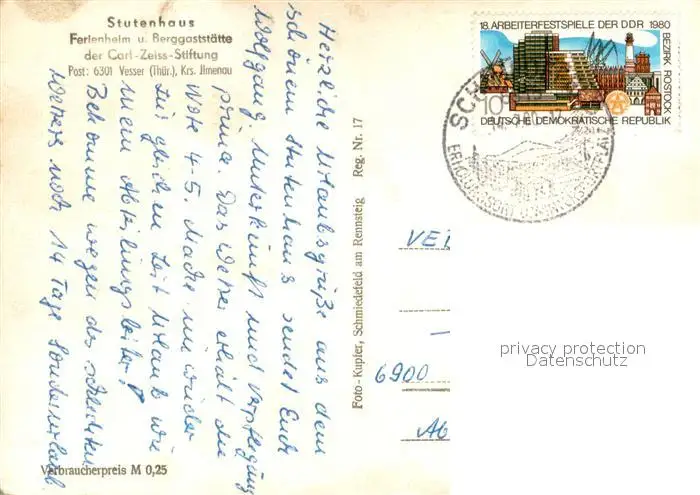 Stutenhaus
Ferienheim u. Berggaststätte
der Carl-Zeiss-Stiftung
Post: 6301 Vesser (Thür.), Krs. Jlmenau
Herzliche Urlaubsgrüße aus dem
schönem Stutenhaus sendet Euch
Wolfgang. Unterkunft und Verpflegung
prima. Das Wetter erhält die
Note 4-5. Mache nie wieder
zur gleichen Zeit Urlaub wie
mein Abteilungsleiter!
Bekomme wegen des schlechten
Wetters noch 14 Tage Sonderurlaub.
Verbraucherpreis M 0,25
Foto-Kupfer, Schmiedefeld am Rennsteig Reg. Nr. 17
18. ARBEITERFESTSPIELE DER DDR 1980
BEZIRK ROSTOCK
10
DEUTSCHE DEMOKRATISCHE REPUBLIK
SCH
ERHOLUNGS
6900
privacy protection
Datenschutz